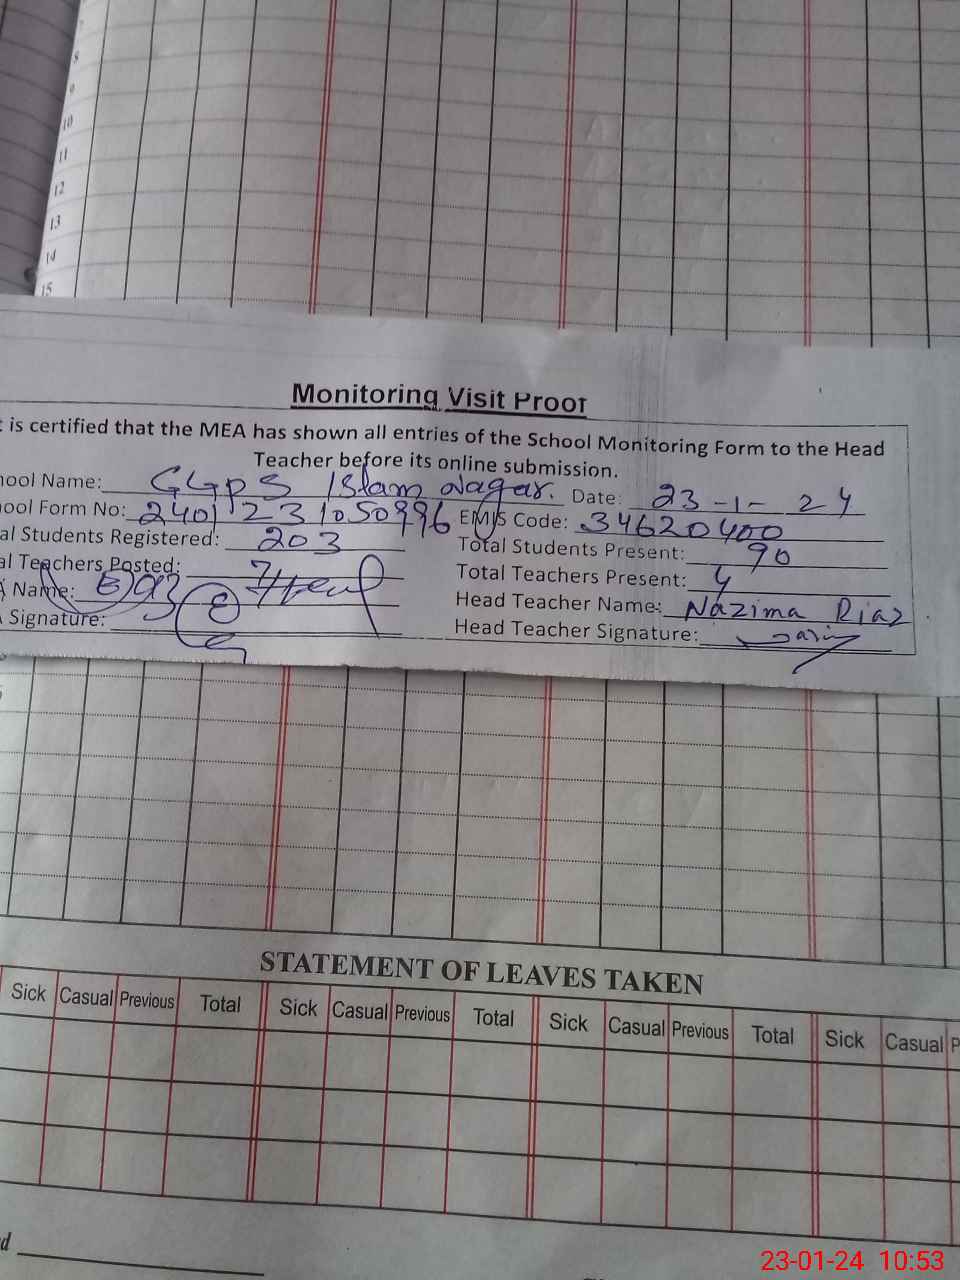 8
9
10
11
12
13
14
15
Monitoring Visit Proof
is certified that the MEA has shown all entries of the School Monitoring Form to the Head
Teacher before its online submission.
hool Name: GGPS Islam Nagar. Date: 23-1-24
hool Form No: 2401231050996 EMIS Code: 34620400
al Students Registered: 203 Total Students Present: 90
al Teachers Posted: 7 Total Teachers Present: 4
Name: Head Teacher Name: Nazima Riaz
Signature: Head Teacher Signature:
STATEMENT OF LEAVES TAKEN
Sick Casual Previous Total Sick Casual Previous Total Sick Casual Previous Total Sick Casual P
d
23-01-24 10:53